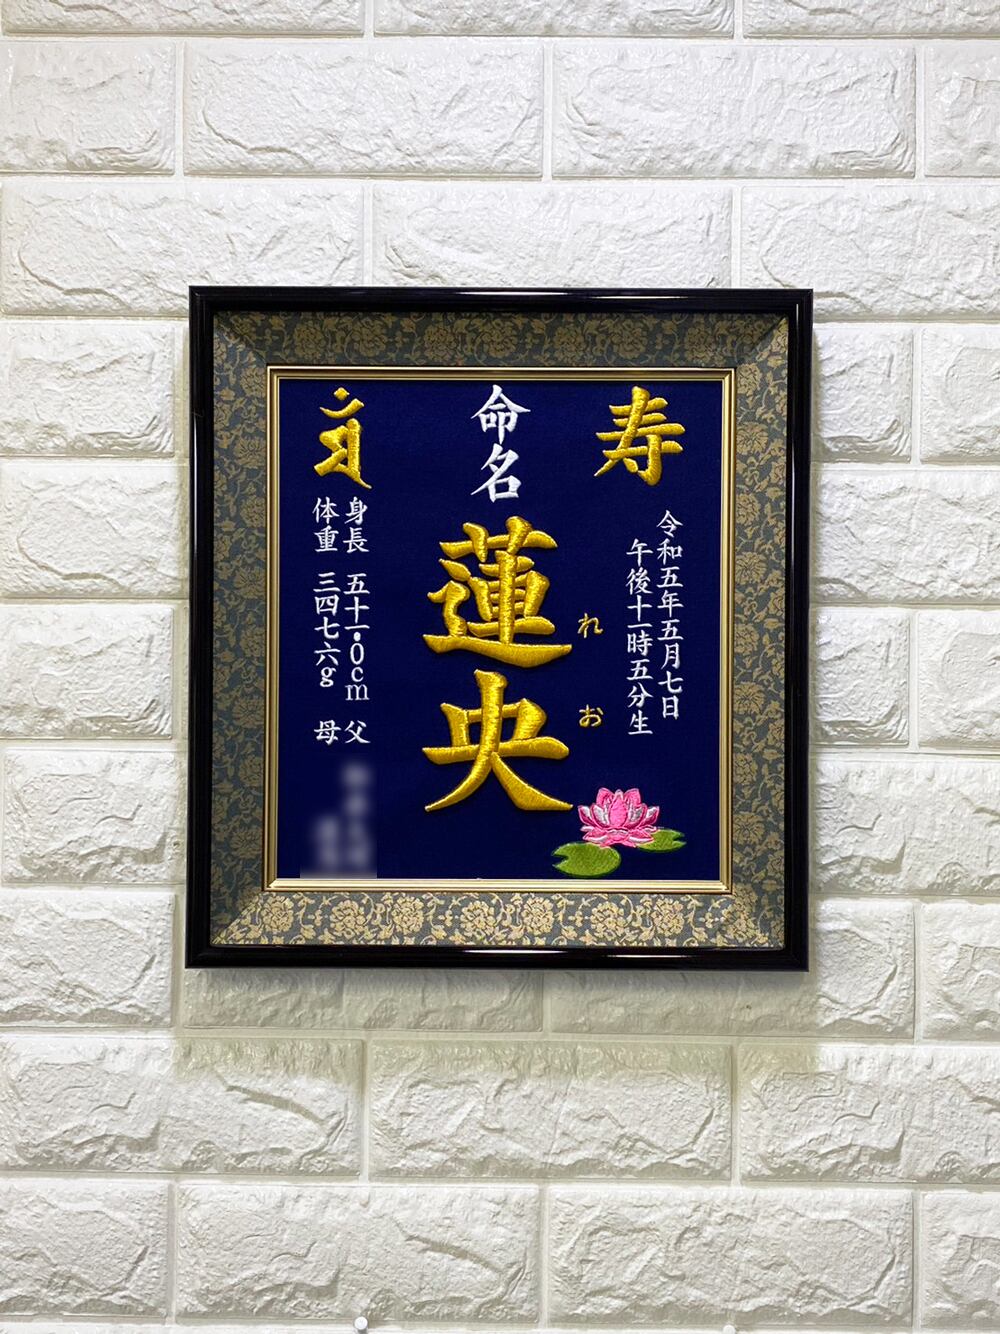 寿
令和五年五月七日
午後十一時五分生
命名
蓮央
れお
身長 五十一・0cm 父
体重 三四七六g 母